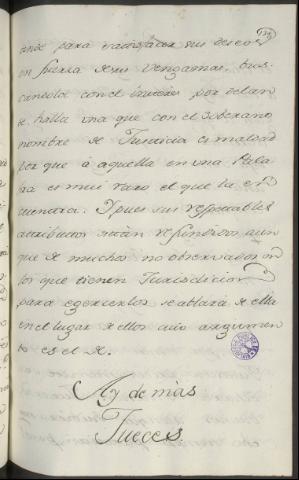 ande para saciar sus deseos
en fuerza de sus venganzas, bus
candola con el interes por delan
te. halla una que con el soberano
nombre de Justicia es maldad
por que à aquella en una Pala
bra es mui raro el que la en
cuentra. Y pues sus respetables
atributos están refundidos aun
que de muchos no observados en
los que tienen Jurisdicion
para egercerlos se ablará de ella
en el lugar de ellos cuio argumen
to es el de.
Ay demàs
Jueces